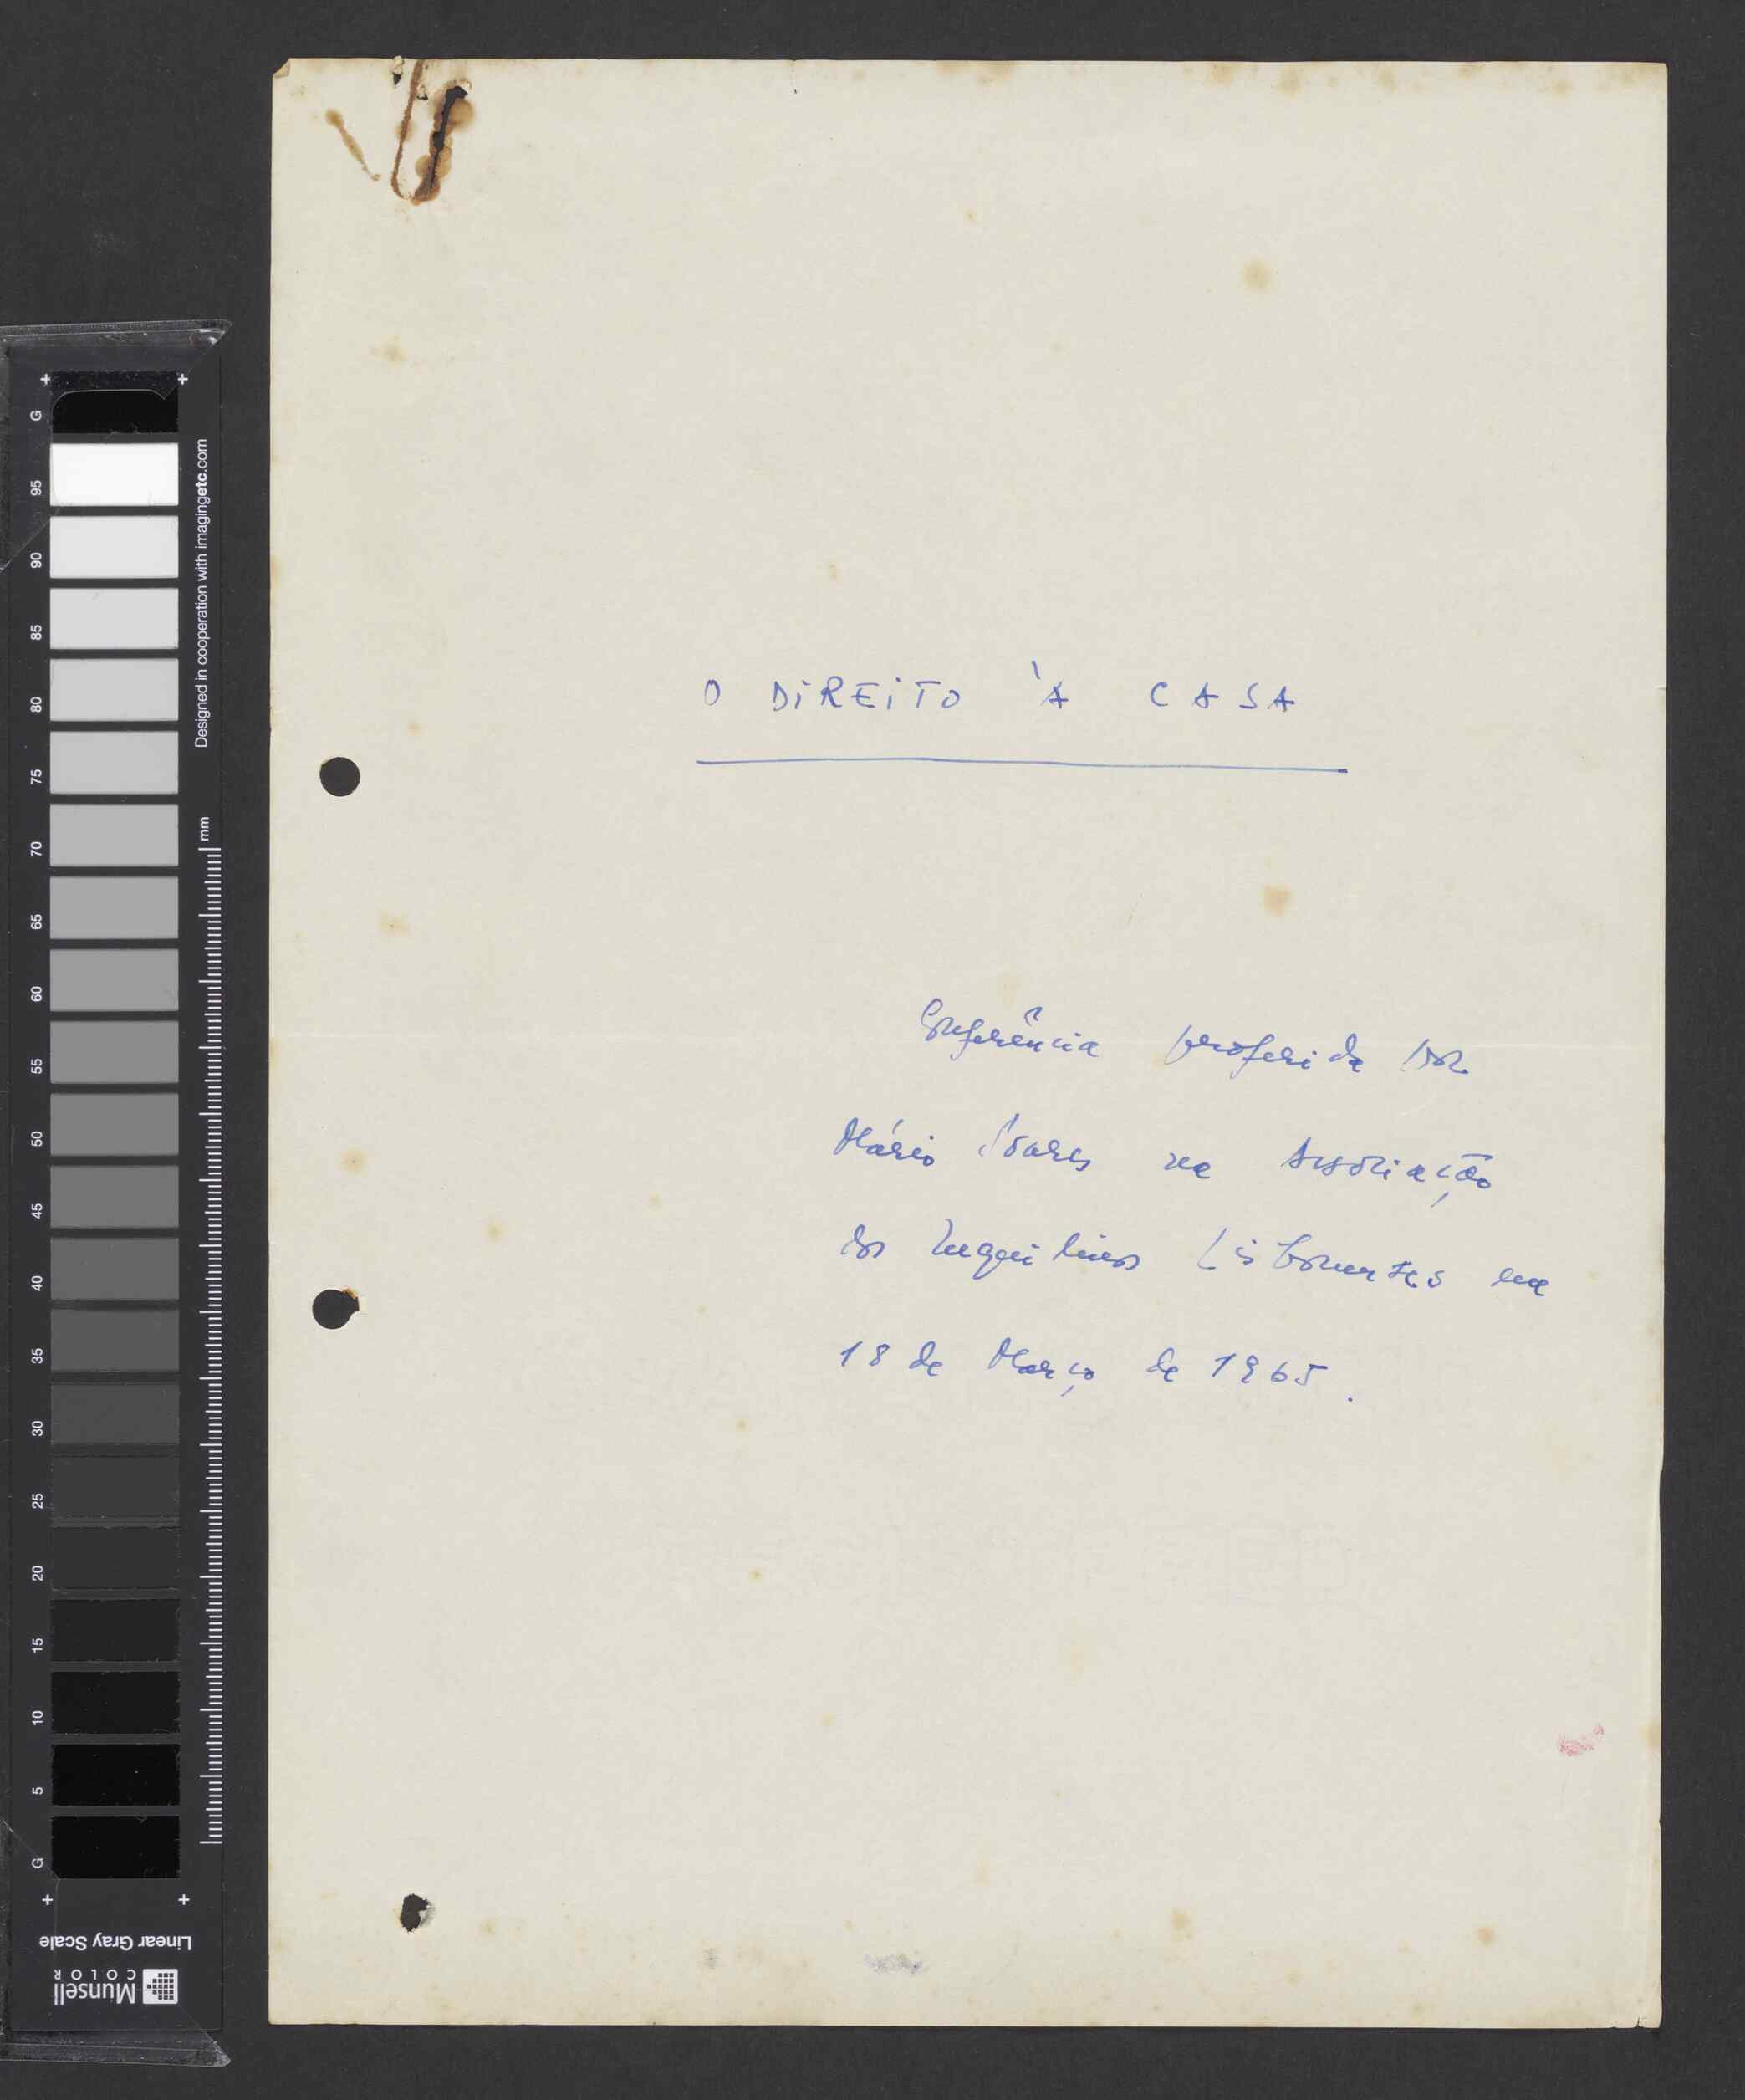 O DIREITO À CASA
Conferência proferida por
Mário Soares na Associação
dos Inquilinos Lisbonenses em
18 de Março de 1965.
G 95 90 85 80 75 70 65 60 55 50 45 40 35 30 25 20 15 10 5 G
Designed in cooperation with imagingetc.com
mm
Linear Gray Scale
Munsell
COLOR